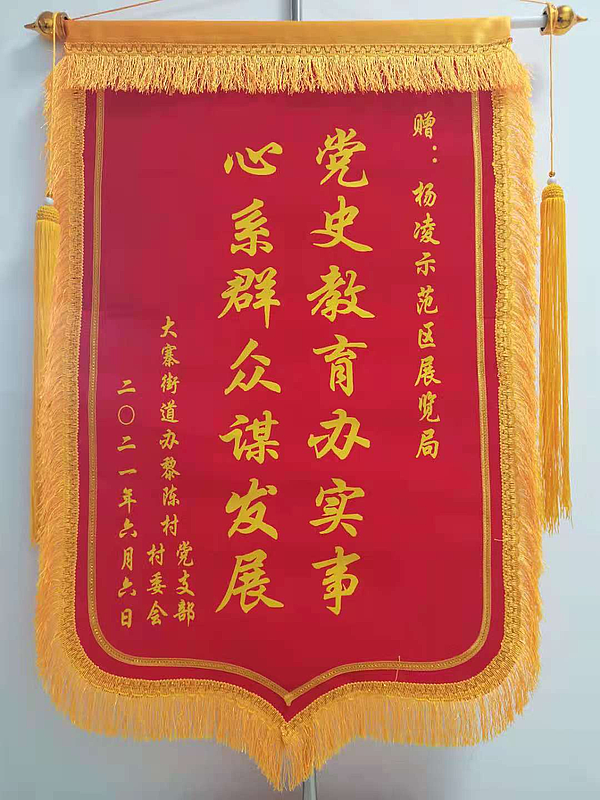 赠：杨凌示范区展览局
党史教育办实事
心系群众谋发展
大寨街道办黎陈村党支部
村委会
二〇二一年六月六日